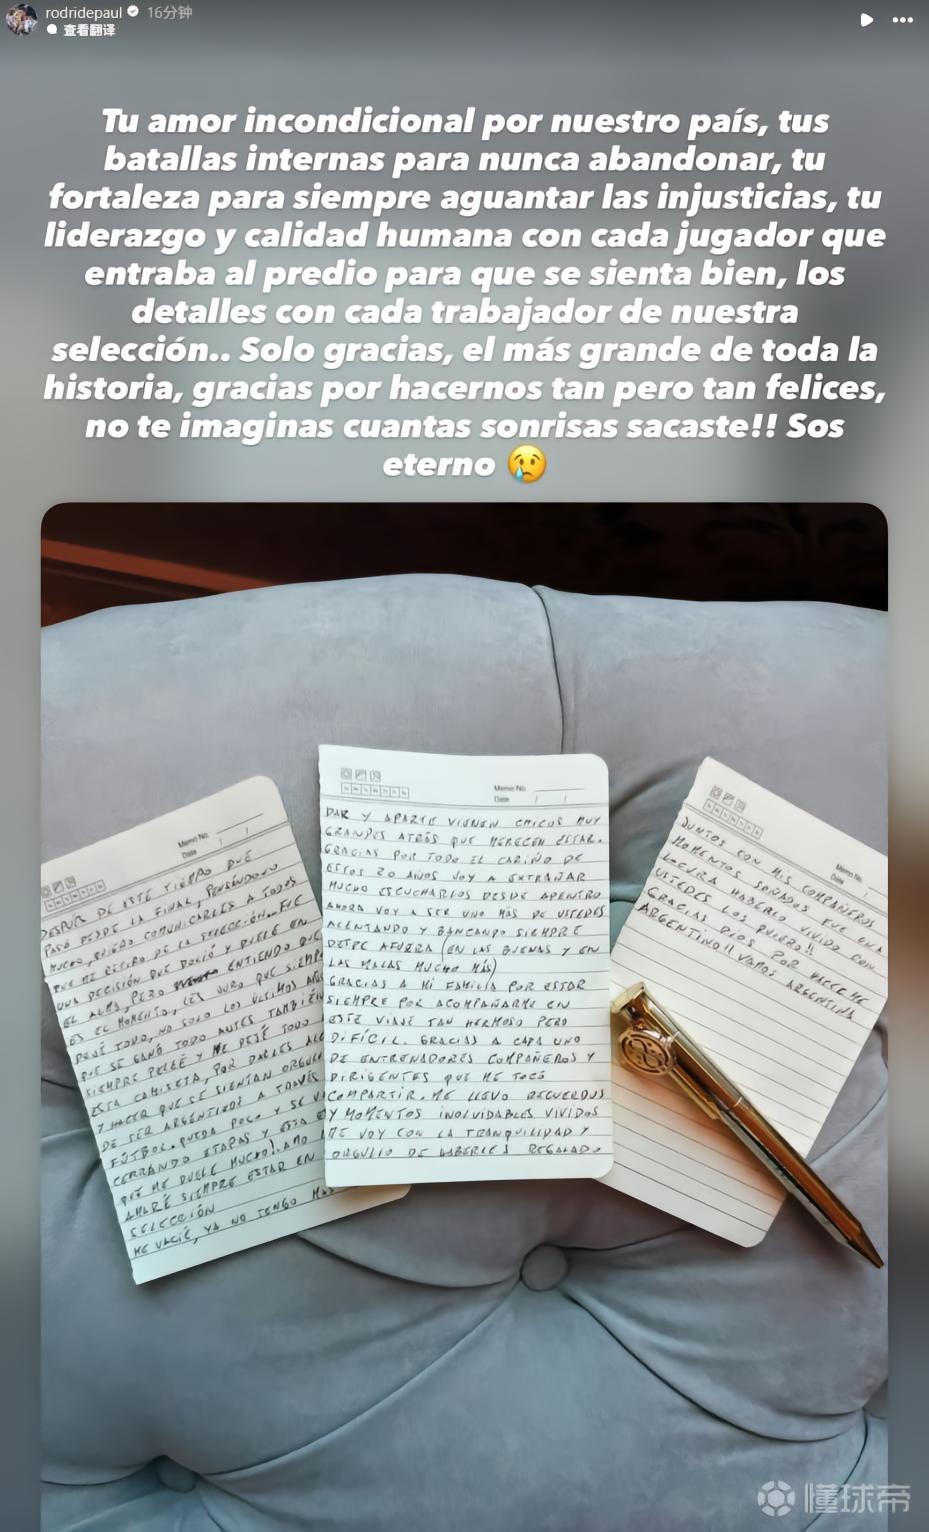 rodridepaul 16分钟
查看翻译
Tu amor incondicional por nuestro país, tus
batallas internas para nunca abandonar, tu
fortaleza para siempre aguantar las injusticias, tu
liderazgo y calidad humana con cada jugador que
entraba al predio para que se sienta bien, los
detalles con cada trabajador de nuestra
selección.. Solo gracias, el más grande de toda la
historia, gracias por hacernos tan pero tan felices,
no te imaginas cuantas sonrisas sacaste!! Sos
eterno 😢
Memo No.
Date / /
DESPUÉS DE ESTE TIEMPO QUE
PASÓ DESDE LA FINAL, PENSÁNDOLO
MUCHO, QUIERO COMUNICARLES A TODOS
QUE MI RETIRO DE LA SELECCIÓN.. FUE
UNA DECISIÓN QUE DOLIÓ Y DUELE EN
EL ALMA, PERO ENTIENDO QUE
ES EL MOMENTO, LES JURO QUE SIEMP
DEJÉ TODO, NO SOLO LOS ÚLTIMOS AÑOS
QUE SE GANÓ TODO, ANTES TAMBIÉN
SIEMPRE PELEÉ Y ME DEJÉ TODO
ESTA CAMISETA, POR DARLES ALE
Y HACER QUE SE SIENTAN ORGULL
DE SER ARGENTINOS A TRAVÉS
FÚTBOL. QUEDA POCO Y SE V
CERRANDO ETAPAS Y ESTA
QUE ME DUELE MUCHO! AMO
AMARÉ SIEMPRE ESTAR EN
SELECCIÓN
ME VACIÉ, YA NO TENGO MAS
Memo No.
Date / /
DAR Y APARTE VIENEN CHICOS MUY
GRANDES ATRÁS QUE MERECEN ESTAR.
GRACIAS POR TODO EL CARIÑO DE
ESTOS 20 AÑOS VOY A EXTRAÑAR
MUCHO ESCUCHARLOS DESDE ADENTRO
AHORA VOY A SER UNO MÁS DE USTEDES
ALENTANDO Y BANCANDO SIEMPRE
DESDE AFUERA (EN LAS BUENAS Y EN
LAS MALAS MUCHO MÁS)
GRACIAS A MI FAMILIA POR ESTAR
SIEMPRE POR ACOMPAÑARME EN
ESTE VIAJE TAN HERMOSO PERO
DIFÍCIL. GRACIAS A CADA UNO
DE ENTRENADORES COMPAÑEROS Y
DIRIGENTES QUE ME TOCÓ
COMPARTIR. ME LLEVO RECUERDOS
Y MOMENTOS INOLVIDABLES VIVIDOS
ME VOY CON LA TRANQUILIDAD Y
ORGULLO DE HABERLES REGALADO
Memo No.
Date
JUNTOS CON MIS COMPAÑEROS
MOMENTOS SOÑADOS FUE UNA
LOCURA HABERLO VIVIDO CON
USTEDES LOS QUIERO!!
GRACIAS DIOS POR HACERME
ARGENTINO!! VAMOS ARGENTINA
懂球帝